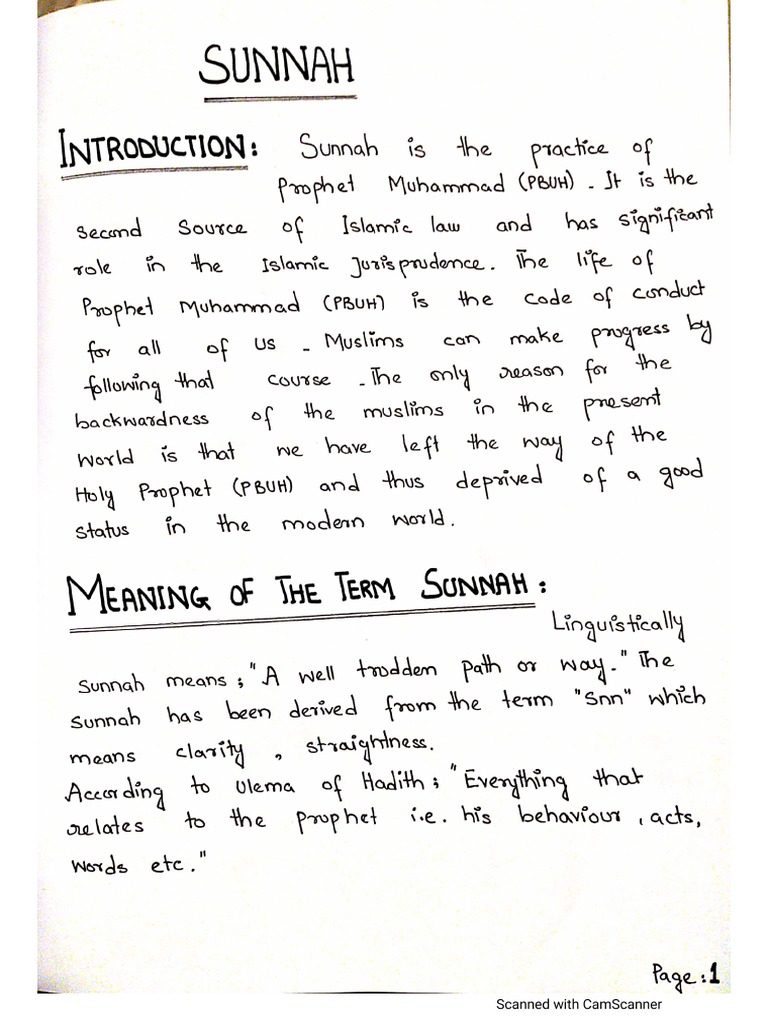 SUNNAH
INTRODUCTION: Sunnah is the practice of
Prophet Muhammad (PBUH). It is the
second source of Islamic law and has significant
role in the Islamic Jurisprudence. The life of
Prophet Muhammad (PBUH) is the code of conduct
for all of us. Muslims can make progress by
following that course. The only reason for the
backwardness of the muslims in the present
world is that we have left the way of the
Holy Prophet (PBUH) and thus deprived of a good
status in the modern world.
MEANING OF THE TERM SUNNAH:
Linguistically
Sunnah means; "A well trodden path or way." The
Sunnah has been derived from the term "Snn" which
means clarity, straightness.
According to Ulema of Hadith; "Everything that
relates to the prophet i.e. his behaviour, acts,
words etc."
Page:1
Scanned with CamScanner